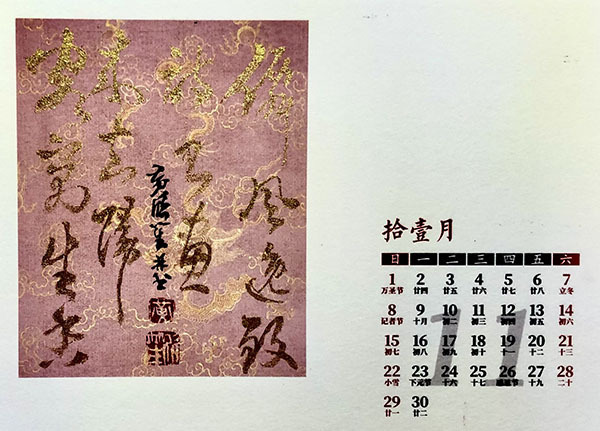 風逸致
生香
拾壹月
日 一 二 三 四 五 六
1 2 3 4 5 6 7
万圣节 廿四 廿五 廿六 廿七 廿八 立冬
8 9 10 11 12 13 14
记者节 十月 初二 初三 初四 初五 初六
15 16 17 18 19 20 21
初七 初八 初九 初十 十一 十二 十三
22 23 24 25 26 27 28
小雪 下元节 十六 十七 感恩节 十九 二十
29 30
廿一 廿二
11